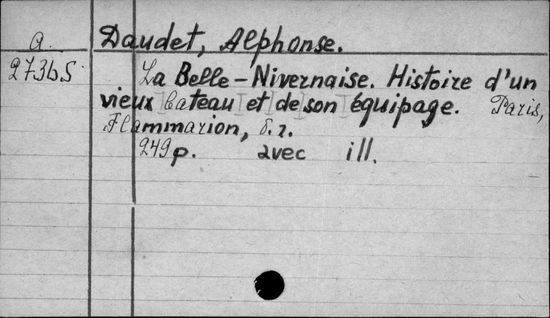 a. Daudet, Alphonse.
2736S La Belle-Nivernaise. Histoire d'un
vieux bateau et de son équipage. Paris,
Flammarion, б.г.
249 p. avec ill.